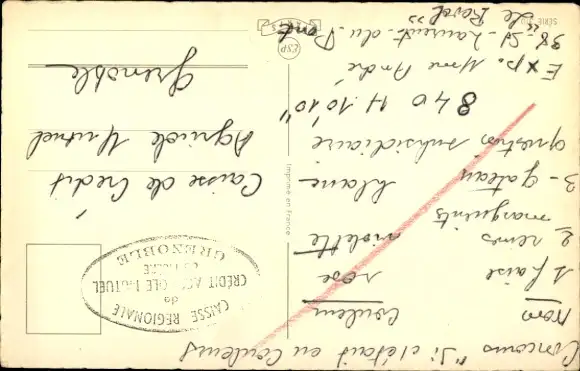 Concours "Si c'était en Couleurs
Nom Couleur
1 fraise rose
2 reines violette
marguerites
3 - gateau blanc
question subsidiaire
840 H 10'10"
Exp. Mme André
38 - St - Laurent - du - Pont
"Le Revol"
Caisse de Crédit
Agricole Mutuel
Grenoble
CAISSE REGIONALE
de
CRÉDIT AGRICOLE MUTUEL
DE L'ISERE
GRENOBLE
Imprimé en France
PARIS
ESP
SÉRIE